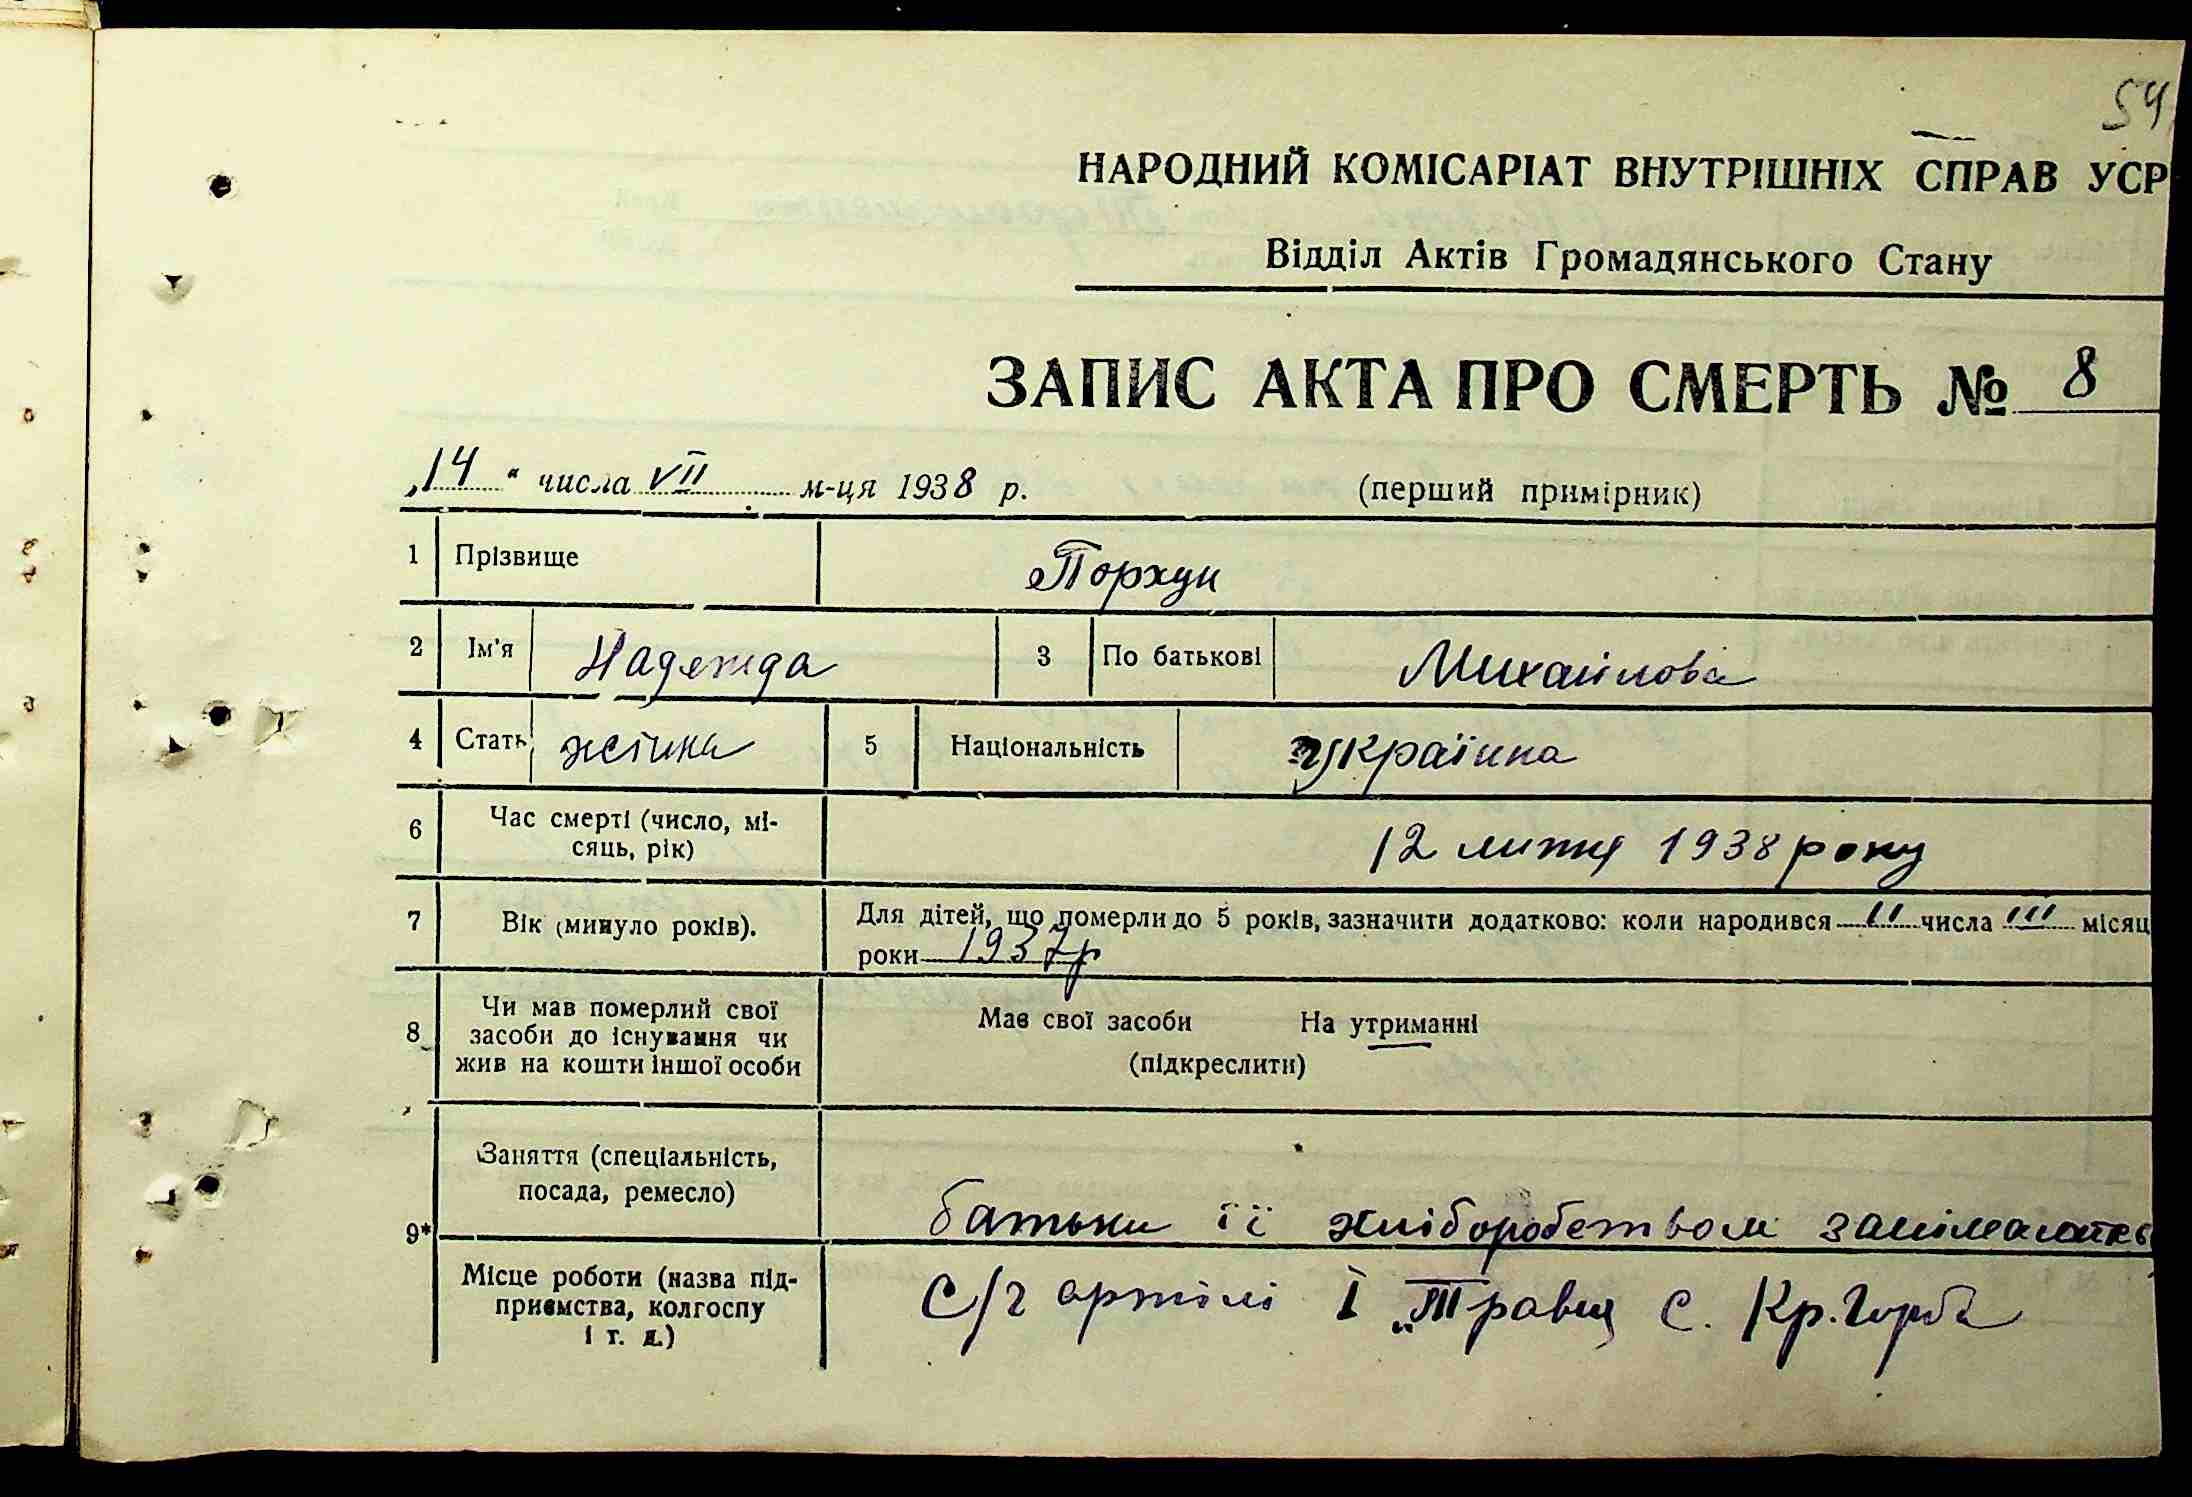 54
НАРОДНИЙ КОМІСАРІАТ ВНУТРІШНІХ СПРАВ УСР
Відділ Актів Громадянського Стану
ЗАПИС АКТА ПРО СМЕРТЬ № 8
„14“ числа VII м-ця 1938 р. (перший примірник)
1 Прізвище Порхун
2 Ім'я Надежда 3 По батькові Михайлова
4 Стать жінка 5 Національність українка
6 Час смерті (число, мі-
сяць, рік) 12 липня 1938 року
7 Вік (минуло років). Для дітей, що померли до 5 років, зазначити додатково: коли народився 11 числа III місяц
роки 1937р
8 Чи мав померлий свої
засоби до існування чи
жив на кошти іншої особи
Мав свої засоби На утриманні
(підкреслити)
9*
Заняття (спеціальність,
посада, ремесло) батьки її хліборобством занімались
Місце роботи (назва під-
приємства, колгоспу
і т. д.) С/г артілі 1 „Травня с. Кр. Горба